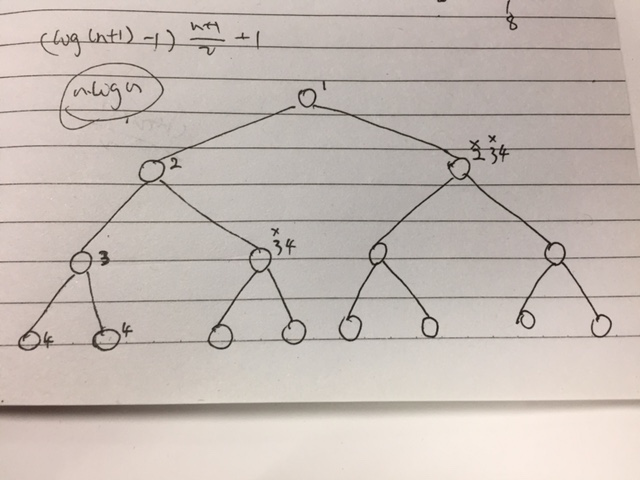 8
(log(n+1) -1) n+1/2 +1
n·logn
1
2
x2 x34
3
x34
4 4